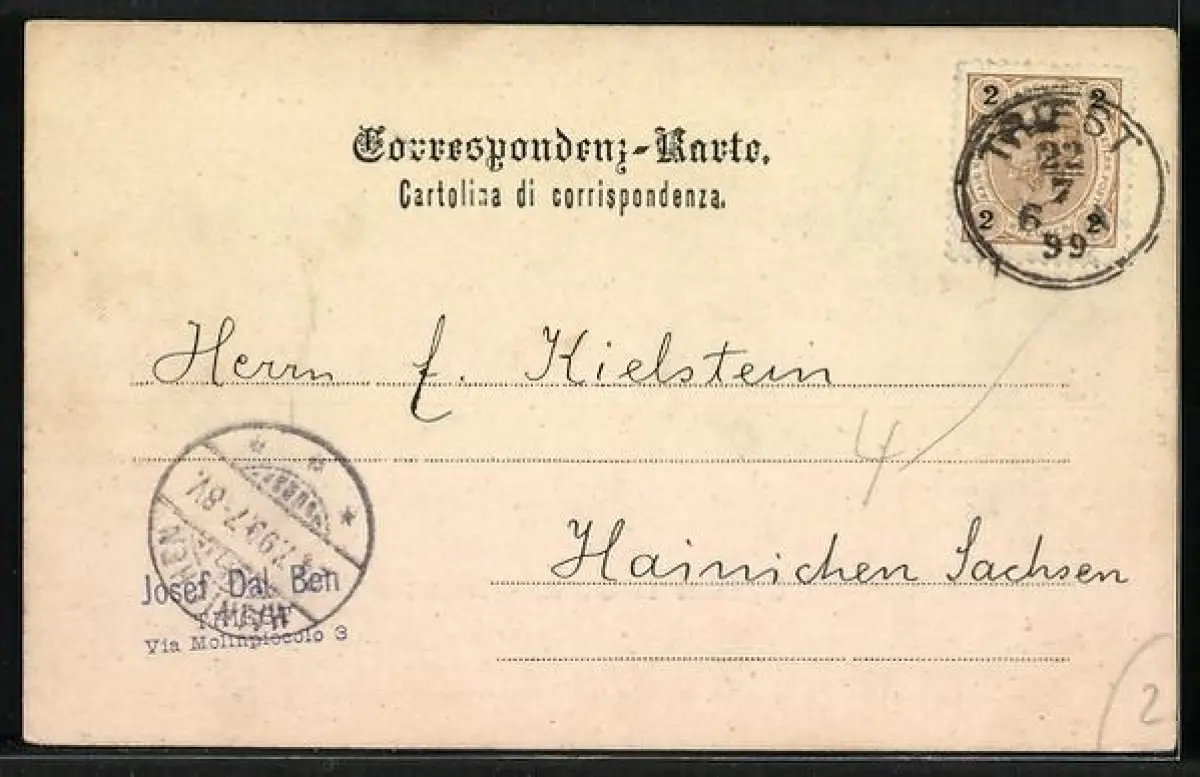 Correspondenz-Karte.
Cartolina di corrispondenza.
2 2
2 2
TRIEST
22
7
6
99
Herrn f. Kielstein
4
Hainichen Sachsen
7-8V.
HAINICHEN
Josef Dal Ben
TRIEST
Via Molinpiccolo 3
2